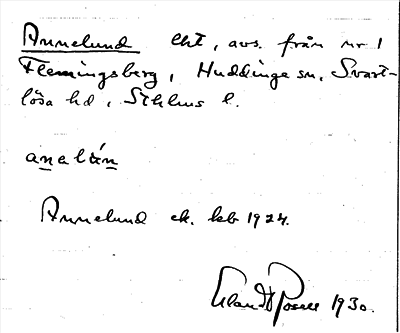 Annelund lht, avs. från nr 1
Flemingsberg, Huddinge sn, Svart-
lösa hd, Sthlms l.
Annelund ek. kb 1924.
Erland Rosell 1930.